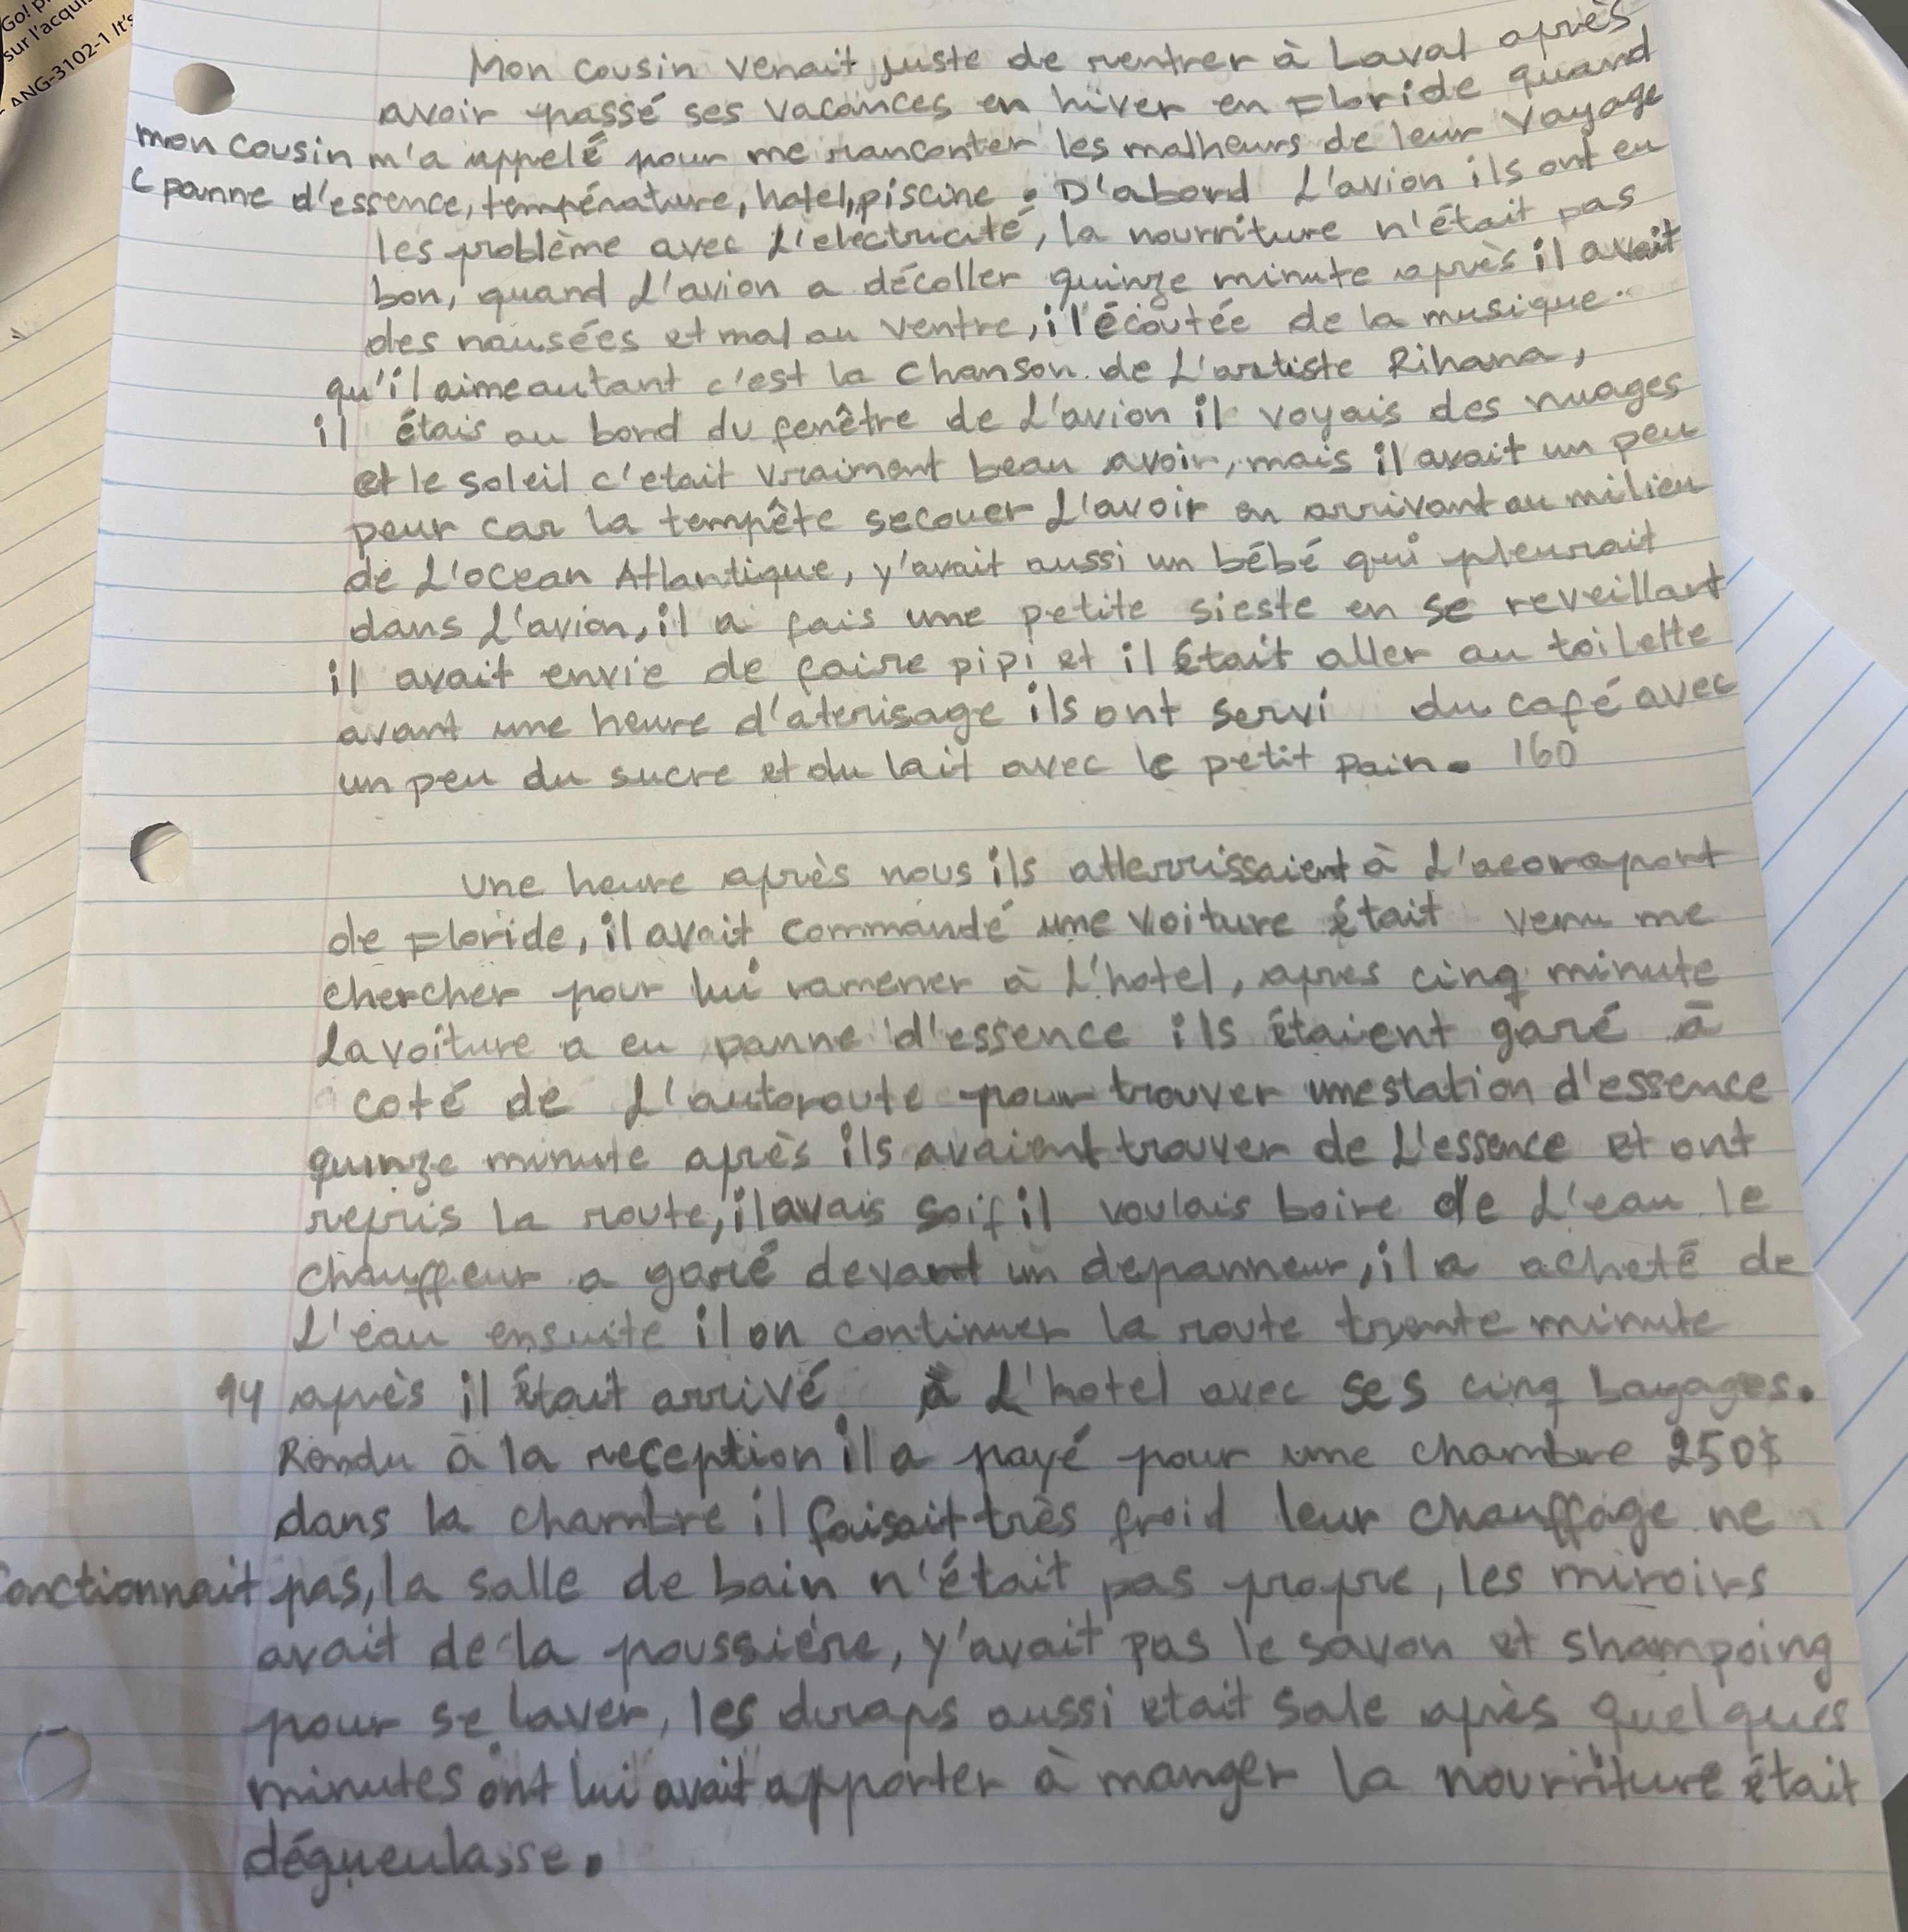 Go! p
sur l'acquis
ANG-3102-1 It's
Mon cousin venait juste de rentrer à Laval après
avoir passé ses vacances en hiver en Floride quand
mon cousin m'a appelé pour me ranconter les malheurs de leur voyage
( panne d'essence, température, hotel, piscine . D'abord L'avion ils ont eu
les problème avec L'electricité, la nourriture n'était pas
bon, quand L'avion a décoller quinze minute après il avait
des nausées et mal au ventre, il écoutée de la musique
qu'il aime autant c'est la chanson de L'artiste Rihana,
il étais au bord du fenêtre de L'avion il voyais des nuages
et le soleil c'etait vraiment beau avoir, mais il avait un peu
peur car la tempête secouer L'avoir en arrivant au milieu
de L'ocean Atlantique, y'avait aussi un bébé qui pleurait
dans L'avion, il a fais une petite sieste en se reveillant
il avait envie de faire pipi et il était aller au toilette
avant une heure d'aterisage ils ont servi du café avec
un peu du sucre et du lait avec le petit pain. 160
Une heure après nous ils atterrissaient à L'aeoraport
de Floride, il avait commandé une voiture était venu me
chercher pour lui ramener à L'hotel, apres cinq minute
La voiture a eu panne d'essence ils étaient garé à
coté de L'autoroute pour trouver une station d'essence
quinze minute après ils avaient trouver de L'essence et ont
repris la route, il avais soif il voulais boire de L'eau le
chauffeur a garé devant un depanneur, il a acheté de
L'eau ensuite il on continuer la route trente minute
94 après il était arrivé à L'hotel avec ses cinq bagages.
Rendu à la reception il a payé pour une chambre 250$
dans la chambre il faisait très froid leur chauffage ne
fonctionnait pas, la salle de bain n'était pas propre, les miroirs
avait de la poussiére, y'avait pas le savon et shampoing
pour se laver, les draps aussi etait sale après quelques
minutes ont lui avait apporter à manger la nourriture était
dégueulasse.